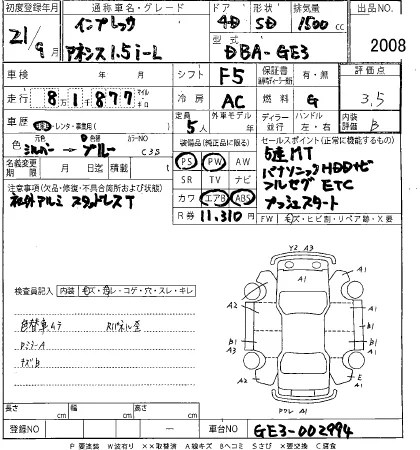 初度登録年月 通称車名・グレード ドア 形状 排気量 出品No.
21/9月 インプレッサ アネシス1.5i-L 4D SD 1500cc 2008
型式 DBA-GE3
車検 年 月 シフト F5 保証書 有・無 評価点
走行 81877 マイル キロ 冷房 AC 燃料 G 3.5
車歴 レンタ・事業用( ) 定員 5人 外車モデル 年 ディーラー 並行 ハンドル 左・右 内装評価 B
元色 シルバー → 色替 ブルー カラーNo C3S
装備品(純正品に限る) セールスポイント(正常に機能するもの)
名義変更期限 月 日迄 積載 PS PW AW
5速MT
パナソニックHDDナビ
注意事項(欠品・修復・不具合箇所および状態) SR TV ナビ
フルセグ ETC
社外アルミ スタッドレスT カワ エアB ABS
プッシュスタート
R券 11,310円 FW キズ・ヒビ割・リペア跡・X要
検査員記入 内装 キズ・汚レ・コゲ・穴・スレ・キレ
Y2 A3
A1
A1
A2 A1
色替車ムラ Rパネル歪
B1 B1
A3 A1
キズB
A2 E
A1
A1
長さ cm 幅 cm 高さ cm
登録No − 車台No GE3-002994
P 要塗装 W波有り ××取替済 A線キズ Bヘコミ Sさび ×要交換 C腐食